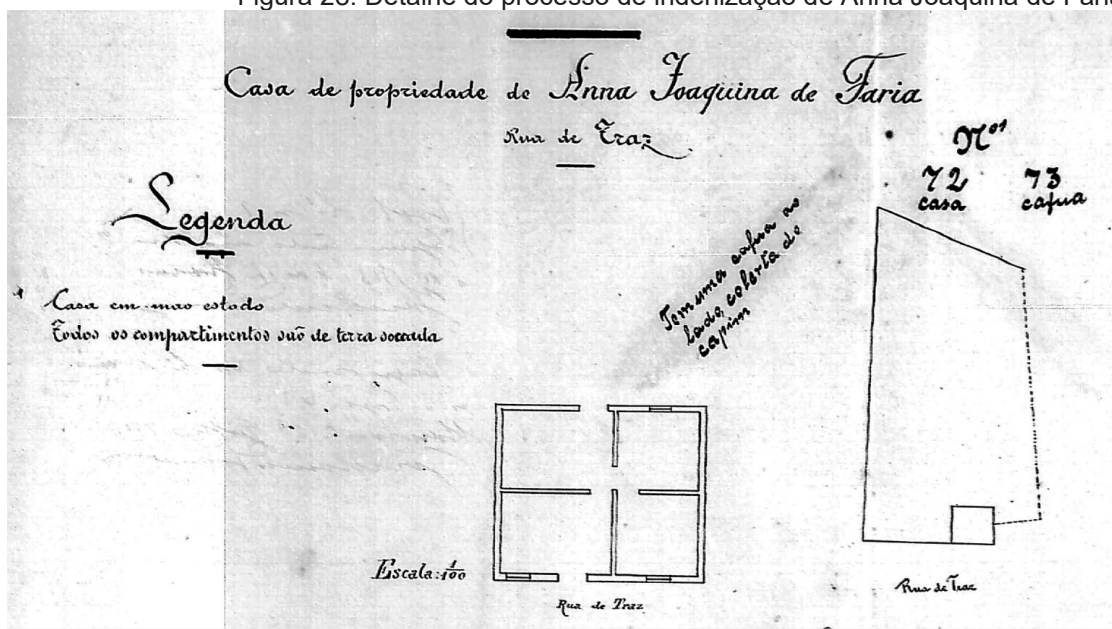 Figura 28: Detalhe do processo de indenização de Anna Joaquina de Faria
Casa de propriedade de Anna Joaquina de Faria
Rua de Traz
Nos
72 73
casa cafua
Legenda
Casa em mao estado
Todos os compartimentos são de terra soccada
Tem uma cafua ao
lado, coberta de
capim
Escala: 1/100
Rua de Traz
Rua de Traz